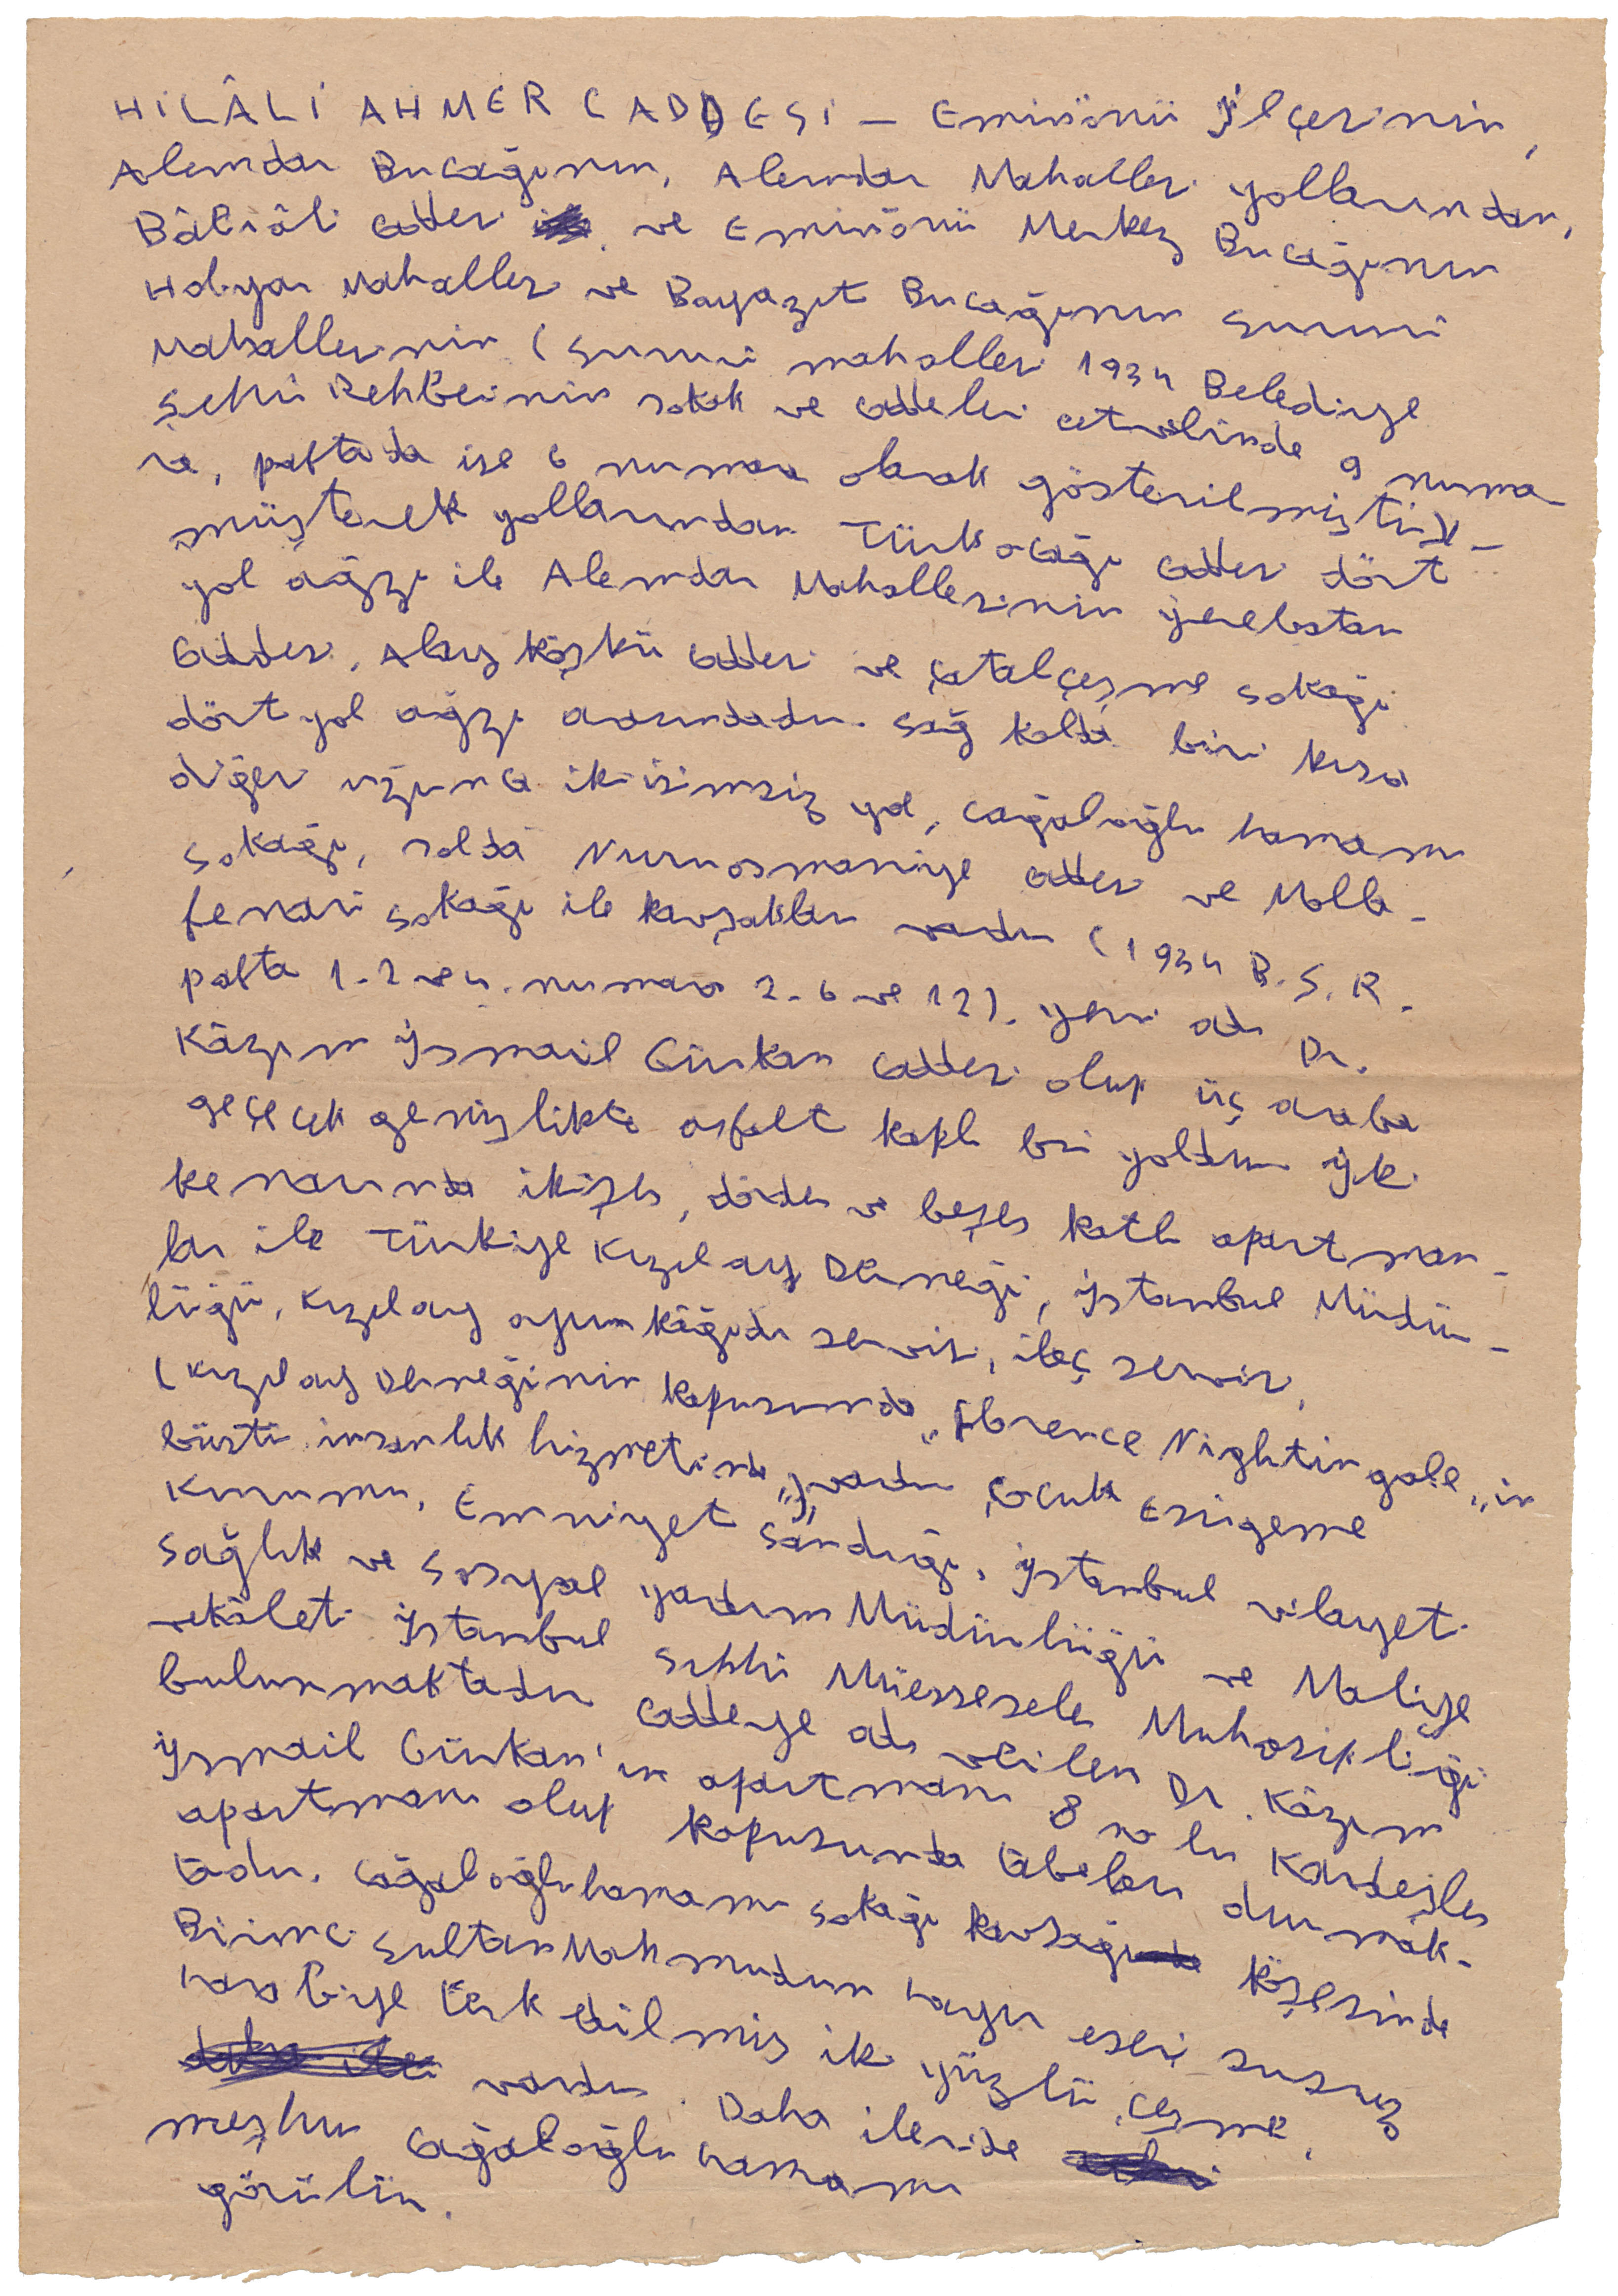 HİLÂLİ AHMER CADDESİ — Eminönü İlçesinin,
Alemdar Bucağının, Alemdar Mahallesi yollarından,
Bâbıâli caddesi ve Eminönü Merkez Bucağının
Hobyar Mahallesi ve Bayazıt Bucağının Sururi
Mahallesinin (Sururi mahallesi 1934 Belediye
Şehir Rehberinin sokak ve caddeler cetvelinde 9 numa-
ra, paftada ise 6 numara olarak gösterilmiştir) -
müşterek yollarından Türkocağı caddesi dört
yol ağzı ile Alemdar Mahallesinin Yerebatan
Caddesi, Alay Köşkü caddesi ve Çatalçeşme sokağı
dört yol ağzı arasındadır. Sağ kolda biri kısa
diğeri uzunca iki isimsiz yol, Cağaloğlu hamamı
sokağı, solda Nuruosmaniye caddesi ve Molla-
fenari sokağı ile kavşakları vardır (1934 B.Ş.R.
pafta 1-2 ve 4. numara 2-6 ve 12). Yeni adı Dr.
Kâzım İsmail Gürkan caddesi olup üç araba
geçecek genişlikte asfalt kaplı bir yoldur. İki
kenarında ikişer, dörder ve beşer katlı apartman-
lar ile Türkiye Kızılay Derneği, İstanbul Müdür-
lüğü, Kızılay oyun kâğıdı servisi, ilaç servisi,
(Kızılay Derneğinin kapusunda "Florence Nightingale" in
büstü insanlık hizmetinde") vardır Çocuk Esirgeme
Kurumu, Emniyet Sandığı, İstanbul vilayeti
Sağlık ve Sosyal yardım Müdürlüğü ve Maliye
vekâleti İstanbul Sıhhi Müesseseler Muhasipliği
bulunmaktadır Caddeye adı verilen Dr. Kâzım
İsmail Gürkan'ın apartmanı 8 no lu Kardeşler
apartmanı olup kapusunda tabelası durmak-
tadır. Cağaloğlu hamamı sokağı kavşağı köşesinde
Birinci Sultan Mahmudun hayır eseri susuz
harabiye terk edilmiş iki yüzlü çeşme,
vardır. Daha ileride
meşhur Cağaloğlu hamamı
görülür.